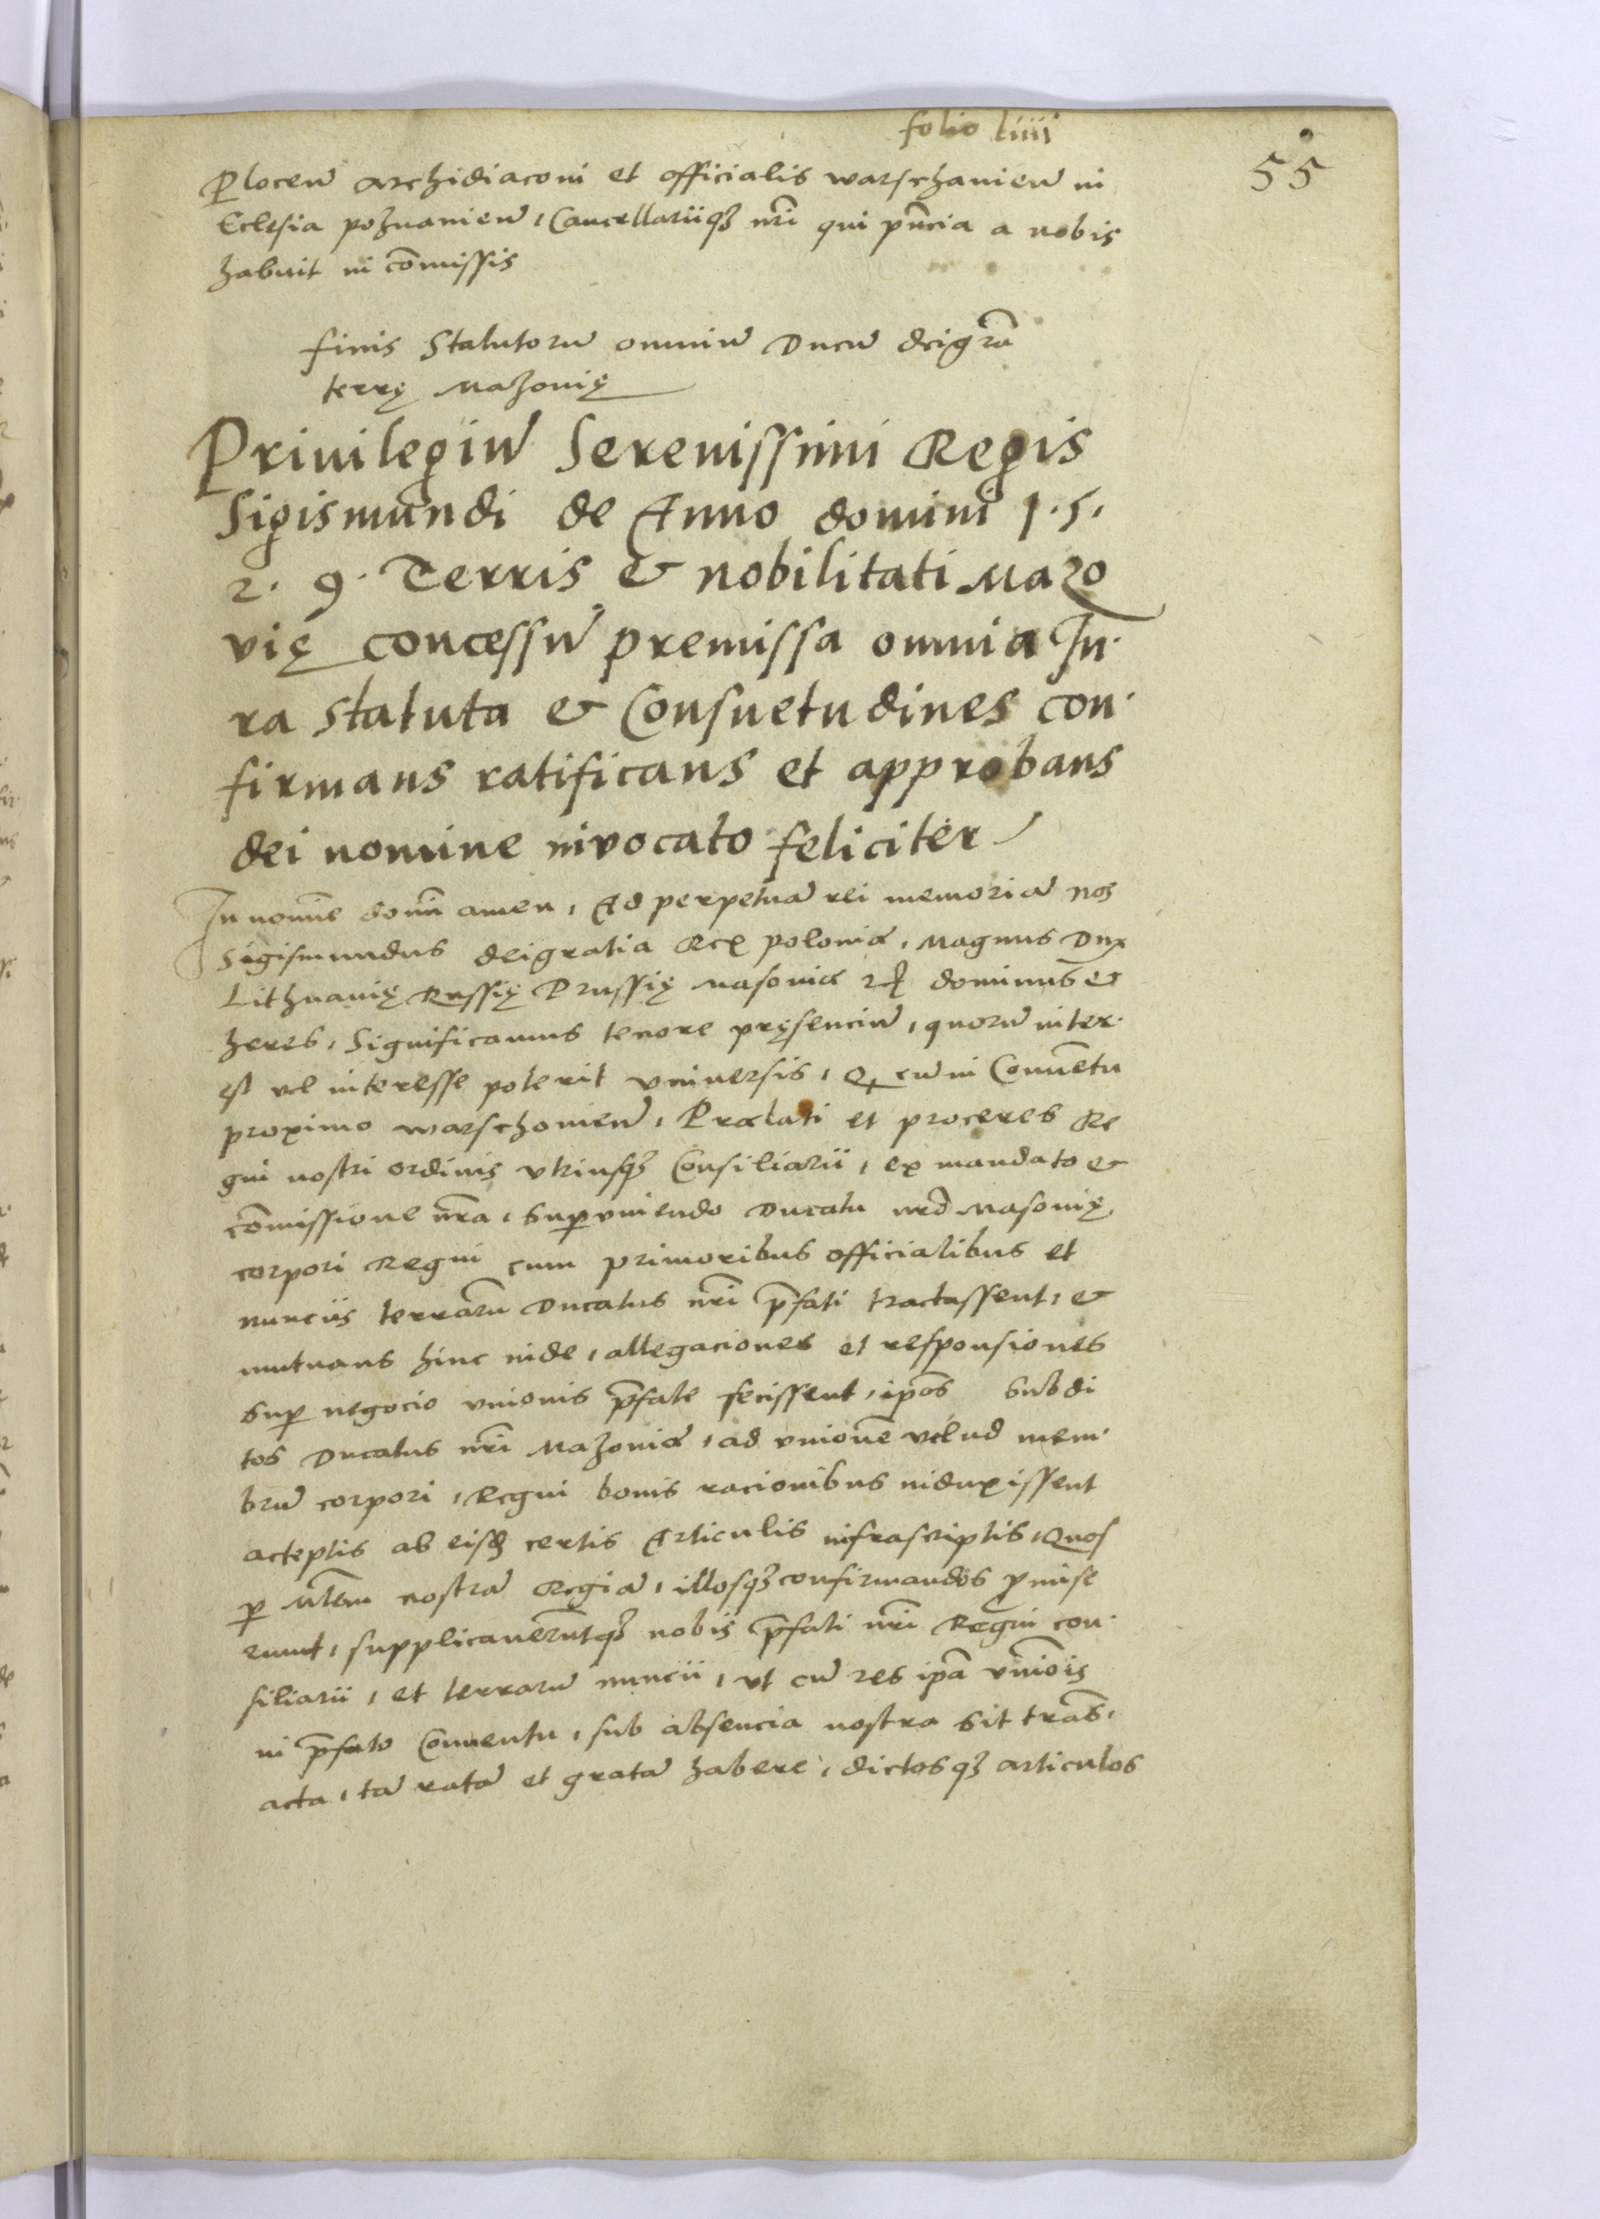 folio liiii
55
Plocen̄ Archidiaconi et officialis warschauien̄ in
Eclesia poznanien̄, Cancellariiqȝ nr̄i qui pn̄cia a nobis
habuit in com̄issis
finis Statutorū omniū Ducū dei gr̄a
terrę Mazouię
Priuilegiū Serenissimi Regis
Sigismundi de Anno domini 1.5.
2.9. Terris & nobilitati Mazo
vię concessū premissa omnia Iu.
ra statuta & Consuetudines con.
firmans ratificans et approbans
dei nomine inuocato feliciter
In nomīe domī amen, Ad perpetuā rei memoriā nos
Sigismundus dei gratia Rex poloniæ, Magnus Dux
Lithuanię Russię Prussię Masouiæ ꝛc̄ dominus &
heres, Significamus tenore pręsenciū, quorū inter.
est vel interesse poterit vniuersis, Q cū in Conuētu
proximo warschouien̄, Prælati et proceres Re
gni nostri ordinis vtriusqȝ Consiliarii, ex mandato &
com̄issione nr̄a, sup vniendo Ducatu nr̄o Masouię
corpori Regni cum primoribus officialibus et
nunciis terrarū Ducatus nr̄i p̄fati tractassent, &
mutuans hinc inde, allegaciones et responsiones
sup negocio vnionis p̄fate fecissent, ip̄os subdi
tos Ducatus nr̄i Mazouiæ, ad vnionē velud mem.
brū corpori, Regni bonis racionibus induxissent
acteptis ab eisd̄ certis Articulis infrascriptis, Quos
p Mtem nostrā Regiā, illosqȝ confirmandos pmise
runt, supplicauerūtqȝ nobis p̄fati nr̄i Regni con.
siliarii, et terrarū nuncii, vt cū res ip̄a vnioīs
in p̄fato Conuentu, sub absencia nostra sit trās,
acta, tā ratā et gratā habere, dictosqȝ articulos